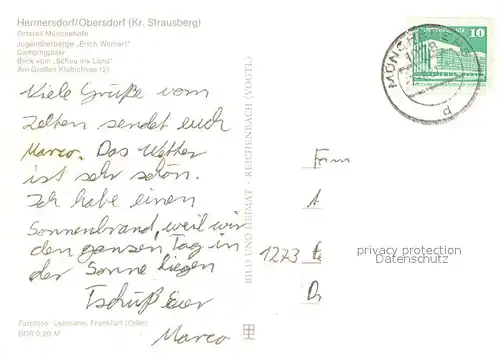 Hermersdorf/Obersdorf (Kr. Strausberg)
Ortsteil Münchehofe
Jugendherberge „Erich Weinert"
Campingplatz
Blick vom „Schau ins Land"
Am Großen Klobichsee (2)
10
MÜNCHEBERG
d
Viele Grüße vom
Zelten sendet euch
Marco. Das Wetter
ist sehr schön.
Ich habe einen
Sonnenbrand, weil wir
den ganzen Tag in
der Sonne liegen
Tschüß Euer
Marco
BILD UND HEIMAT · REICHENBACH (VOGTL)
Fam
A
1273
D
privacy protection
Datenschutz
Farbfoto: Lehmann, Frankfurt (Oder)
DDR 0,20 M